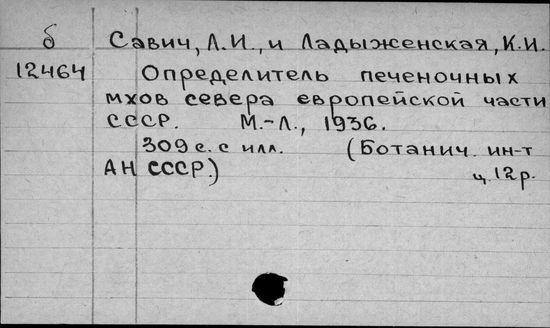 б Савич, Л.И., и Ладыженская, К.И.
12464 Определитель печеночных
мхов севера европейской части
СССР. М.-Л., 1936.
309 с. с илл. (Ботанич. ин-т
АН СССР.) ц. 12 р.